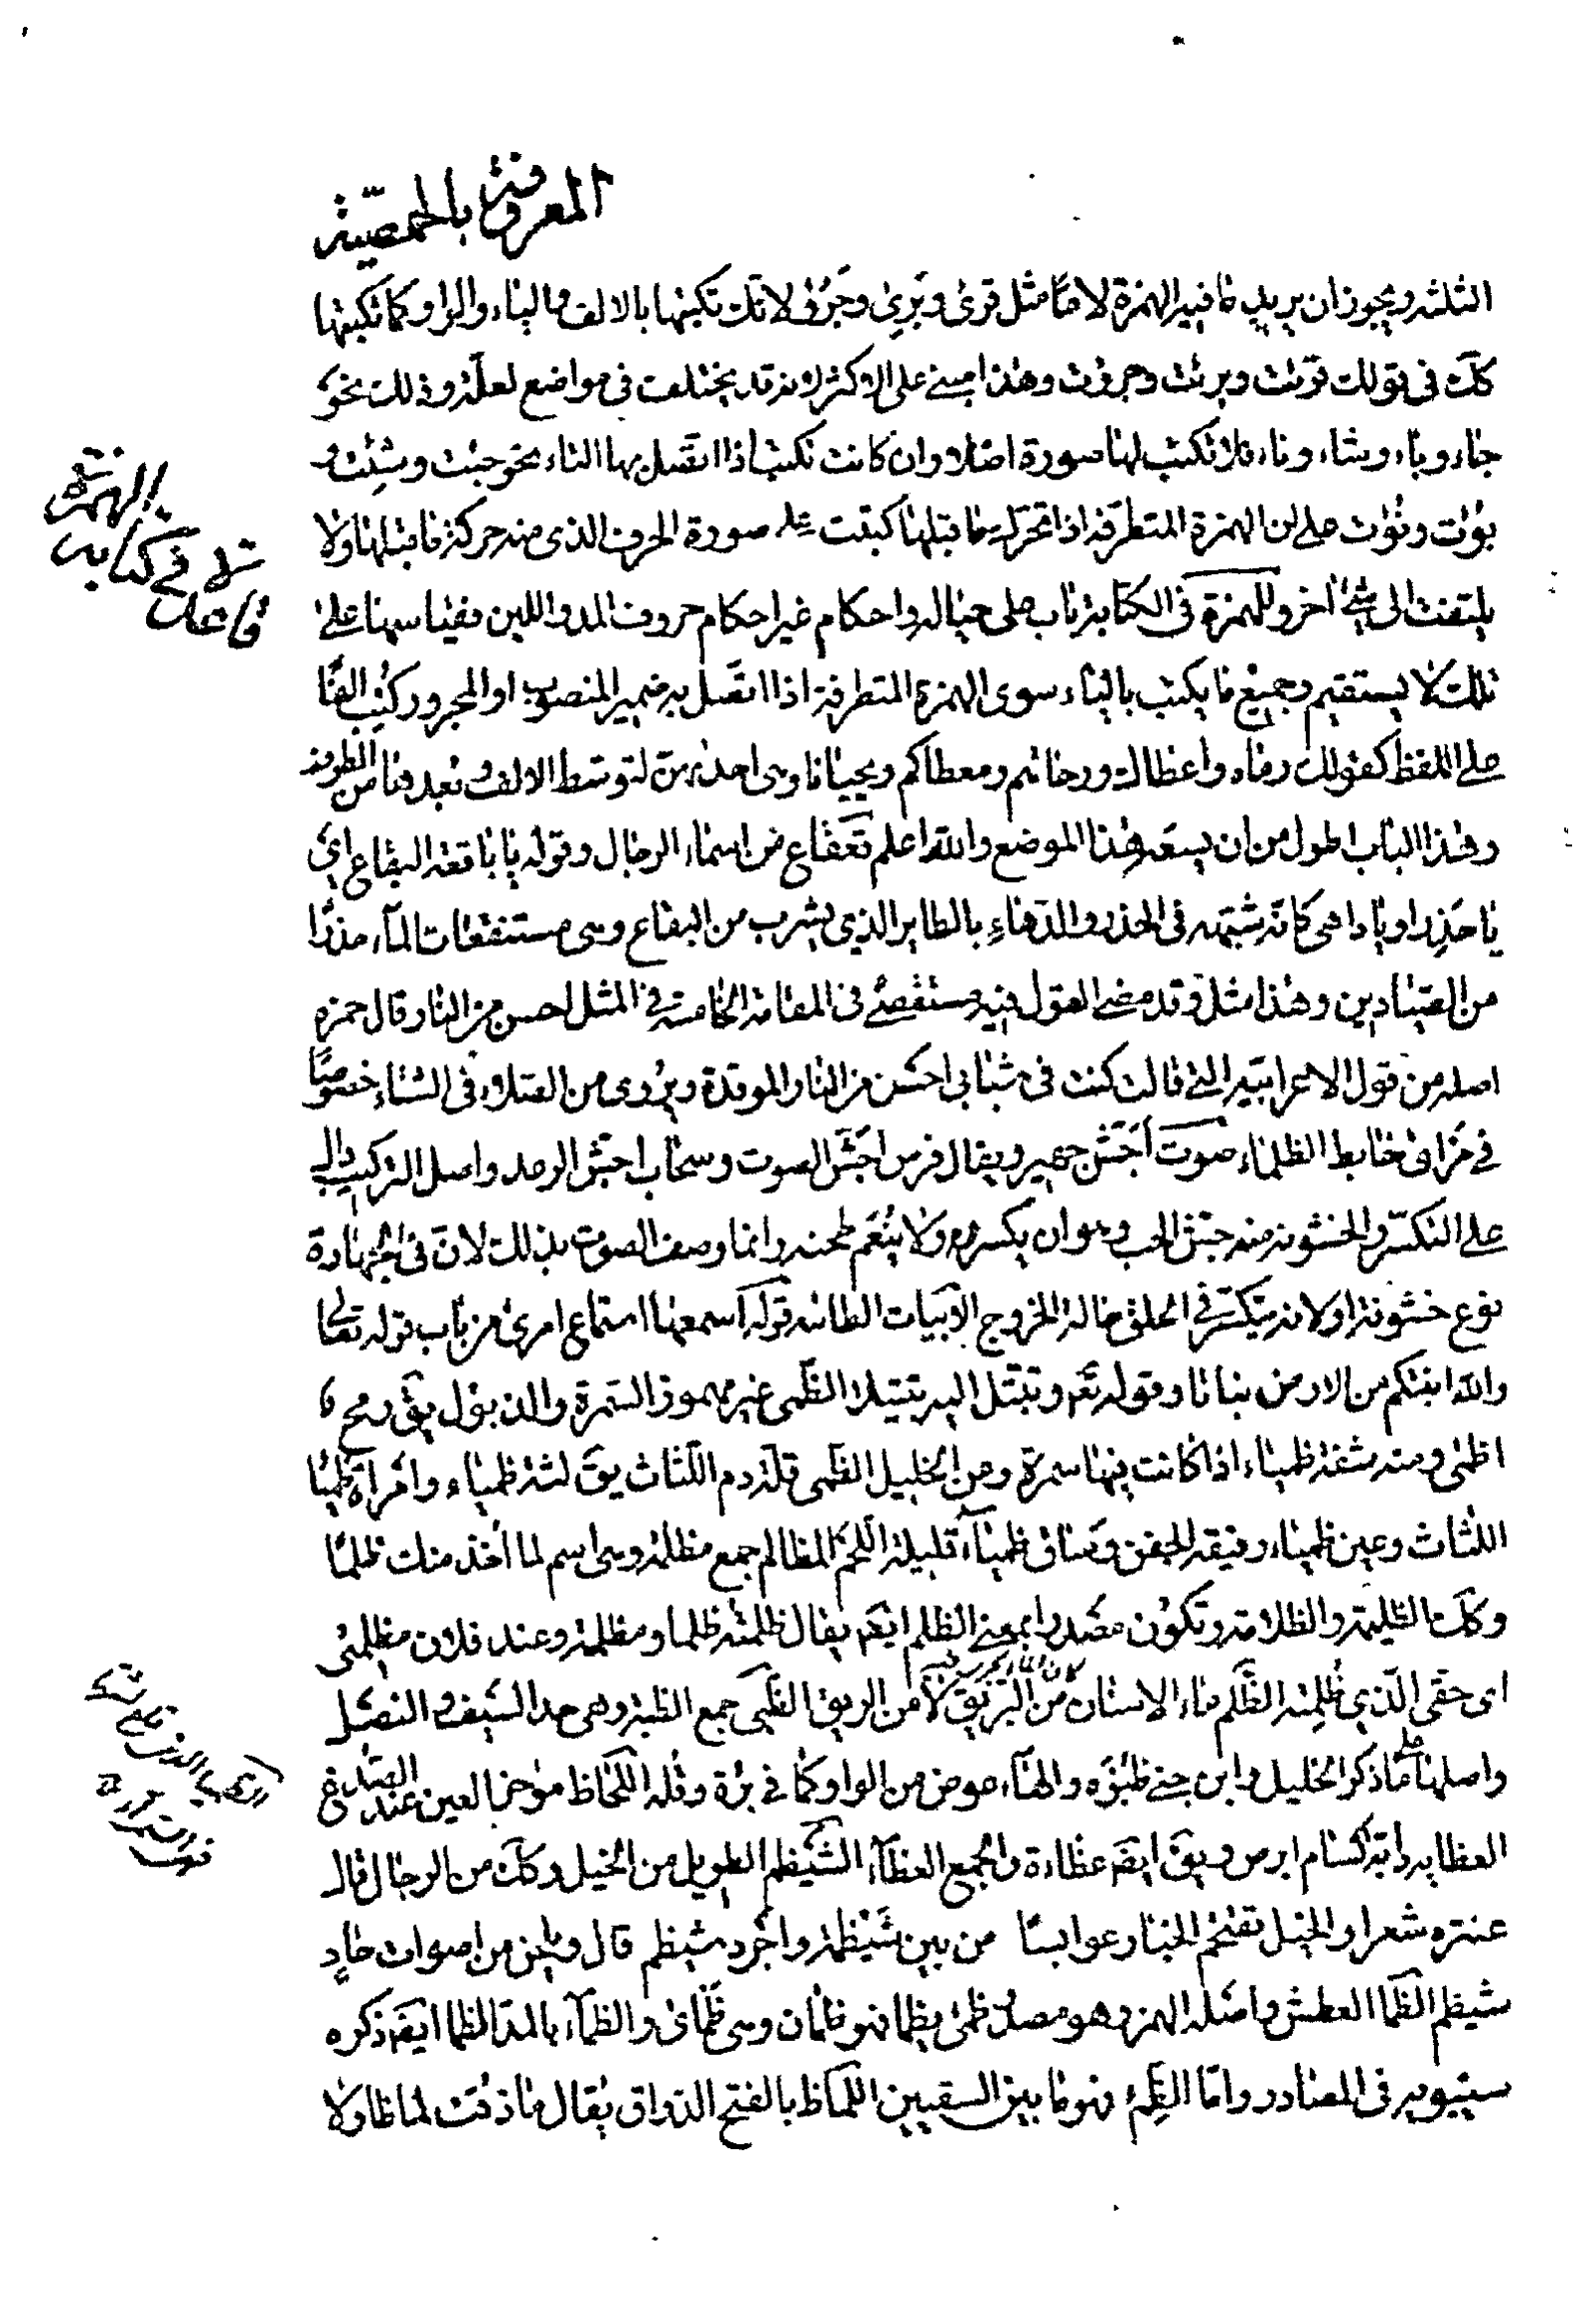 المعروفة بالحمصيّة
الثلثة ويجوز ان يريد ما فيه الهمزة لاما مثل قرئ وبَرِئ وجَرُؤ لانّك تكتبها بالالف والياء والواو كما تكتبها
كلّ في قولك قرئت وبرئت وجرؤت وهذا مبني على الاكثر لانه قد يختلف في مواضع لعلّة وذلك نحو
جاء وباء وشاء وناء فلا تكتب لها صورة اصلا وان كانت تكتب اذا اتصل بها التاء نحو جئت وشِئت و
بؤت ونُؤت على ان الهمزة المتطرّفة اذا تحرك ما قبلها كتبت على صورة الحرف الذي منه حركة ما قبلها ولا
يلتفت الى شئ آخر وللهمزة في الكتابة باب على حياله واحكام غير احكام حروف المد واللين فقياسها على
تلك لا يستقيم وجميع ما يكتب بالياء سوى الهمزة المتطرفة اذا اتصل به ضمير المنصوب او المجرور كُتِب الفًا
على اللفظ كقولك رماه واعطاك ورحاهم ومعطاكم ويحيانا وهي احدىهن لتوسط الالف وبعدها من الطرف
وهذا الباب اطول من ان يسعه هذا الموضع والله اعلم قعقاع من اسماء الرجال وقوله يا باقعة البقاع اي
يا حَذِرا ويا داهي كانه شبّهه في الحذر والدهاء بالطاير الذي يشرب من البقاع وهي مستنقعات الماء حذرًا
من الصيّادين وهذا مثل وقد مضى القول فيه مستقصى في المقامة الخامسة في المثل احسن من النار قال حمزه
اصله من قول الاعرابية التي قالت كنت في شبابي احسَن من النار الموقدة ويُروى من الصلاء في الشتاء خصوصًا
في مخابط الظلماء صوت اجَشّ جهير ويقال فرس اجَشّ الصوت وسحاب اجشّ الرعد واصل التركيب دال
على التكسّر والخشونة منه جشّ الحب وهو ان يكسره ولا يُنعَم طحنه وانما وصف الصوت بذلك لان في الجهارة
نوع خشونة او لانه يتكسّر في الحلق حالة الخروج الابيات الظائيه قوله اسمعها استماع امرئ من باب قوله تعالى
والله انبتكم من الارض نباتا وقوله تع وتبتّل اليه تبتيلا الظّمى غير مهموز السّمرة والذبول يق رمح
اظمى ومنه شفة ظمياء اذا كانت فيها سمرة وعن الخليل الظمى قلّة دم اللثات يق لثة ظمياء وامرأة ظميا
اللثات وعين ظمياء رقيقة الجفن وساق ظمياء قليلة اللحم المظالم جمع مظلمة وهي اسم لما اُخذ منك ظلمًا
وكذلك الظليمة والظلامة وتكون مصدرا بمعنى الظلم ايضا يقال ظلمته ظلما ومظلمة وعند فلان مظلمتي
اي حقي الّذي ظُلِمته الظَّلْم ماء الاسنان من البَريق لا من الريق الظُبى جمع الظبة وهي حد السّيف والنّصل
واصلها على ما ذكر الخليل وابن جني ظُبَوَه والهاء عوض من الواو كما في بُرة وقُلة اللَحاظ مؤخر العين عند الصّدغ
العظاية دابّة كسام ابرص ويق ايضا عظاءة والجمع العظاء الشّيظم الطويل من الخيل وكذلك من الرجال قال
عنتره شعرا والخيل تقتحم الخبار عوابسا من بين شَيْظمة واَجْرد شيظم قال من اصوات حادٍ
شيظم الظمأ العطش واصله الهمز وهو مصدر ظمئ يظما فهو ظمآن وهي ظَمْأى والظماء بالمد الظما ايضا ذكره
سيبويه في المصادر وامّا الظِمْء فهو ما بين السقيين اللَماظ بالفتح الذواق يقال ما ذقت لماظا ولا
الهمزة
في كتابة
قاعدة